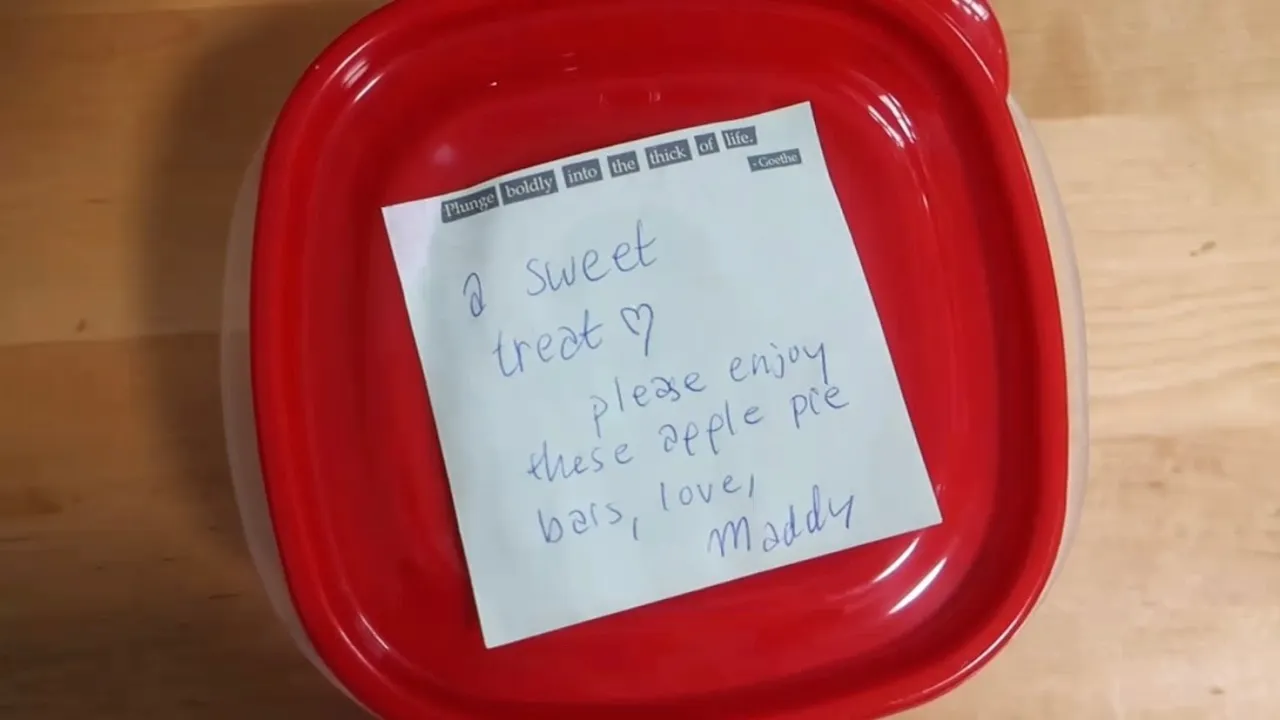 Plunge boldly into the thick of life.
- Goethe
a sweet
treat ♡
please enjoy
these apple pie
bars, love,
Maddy